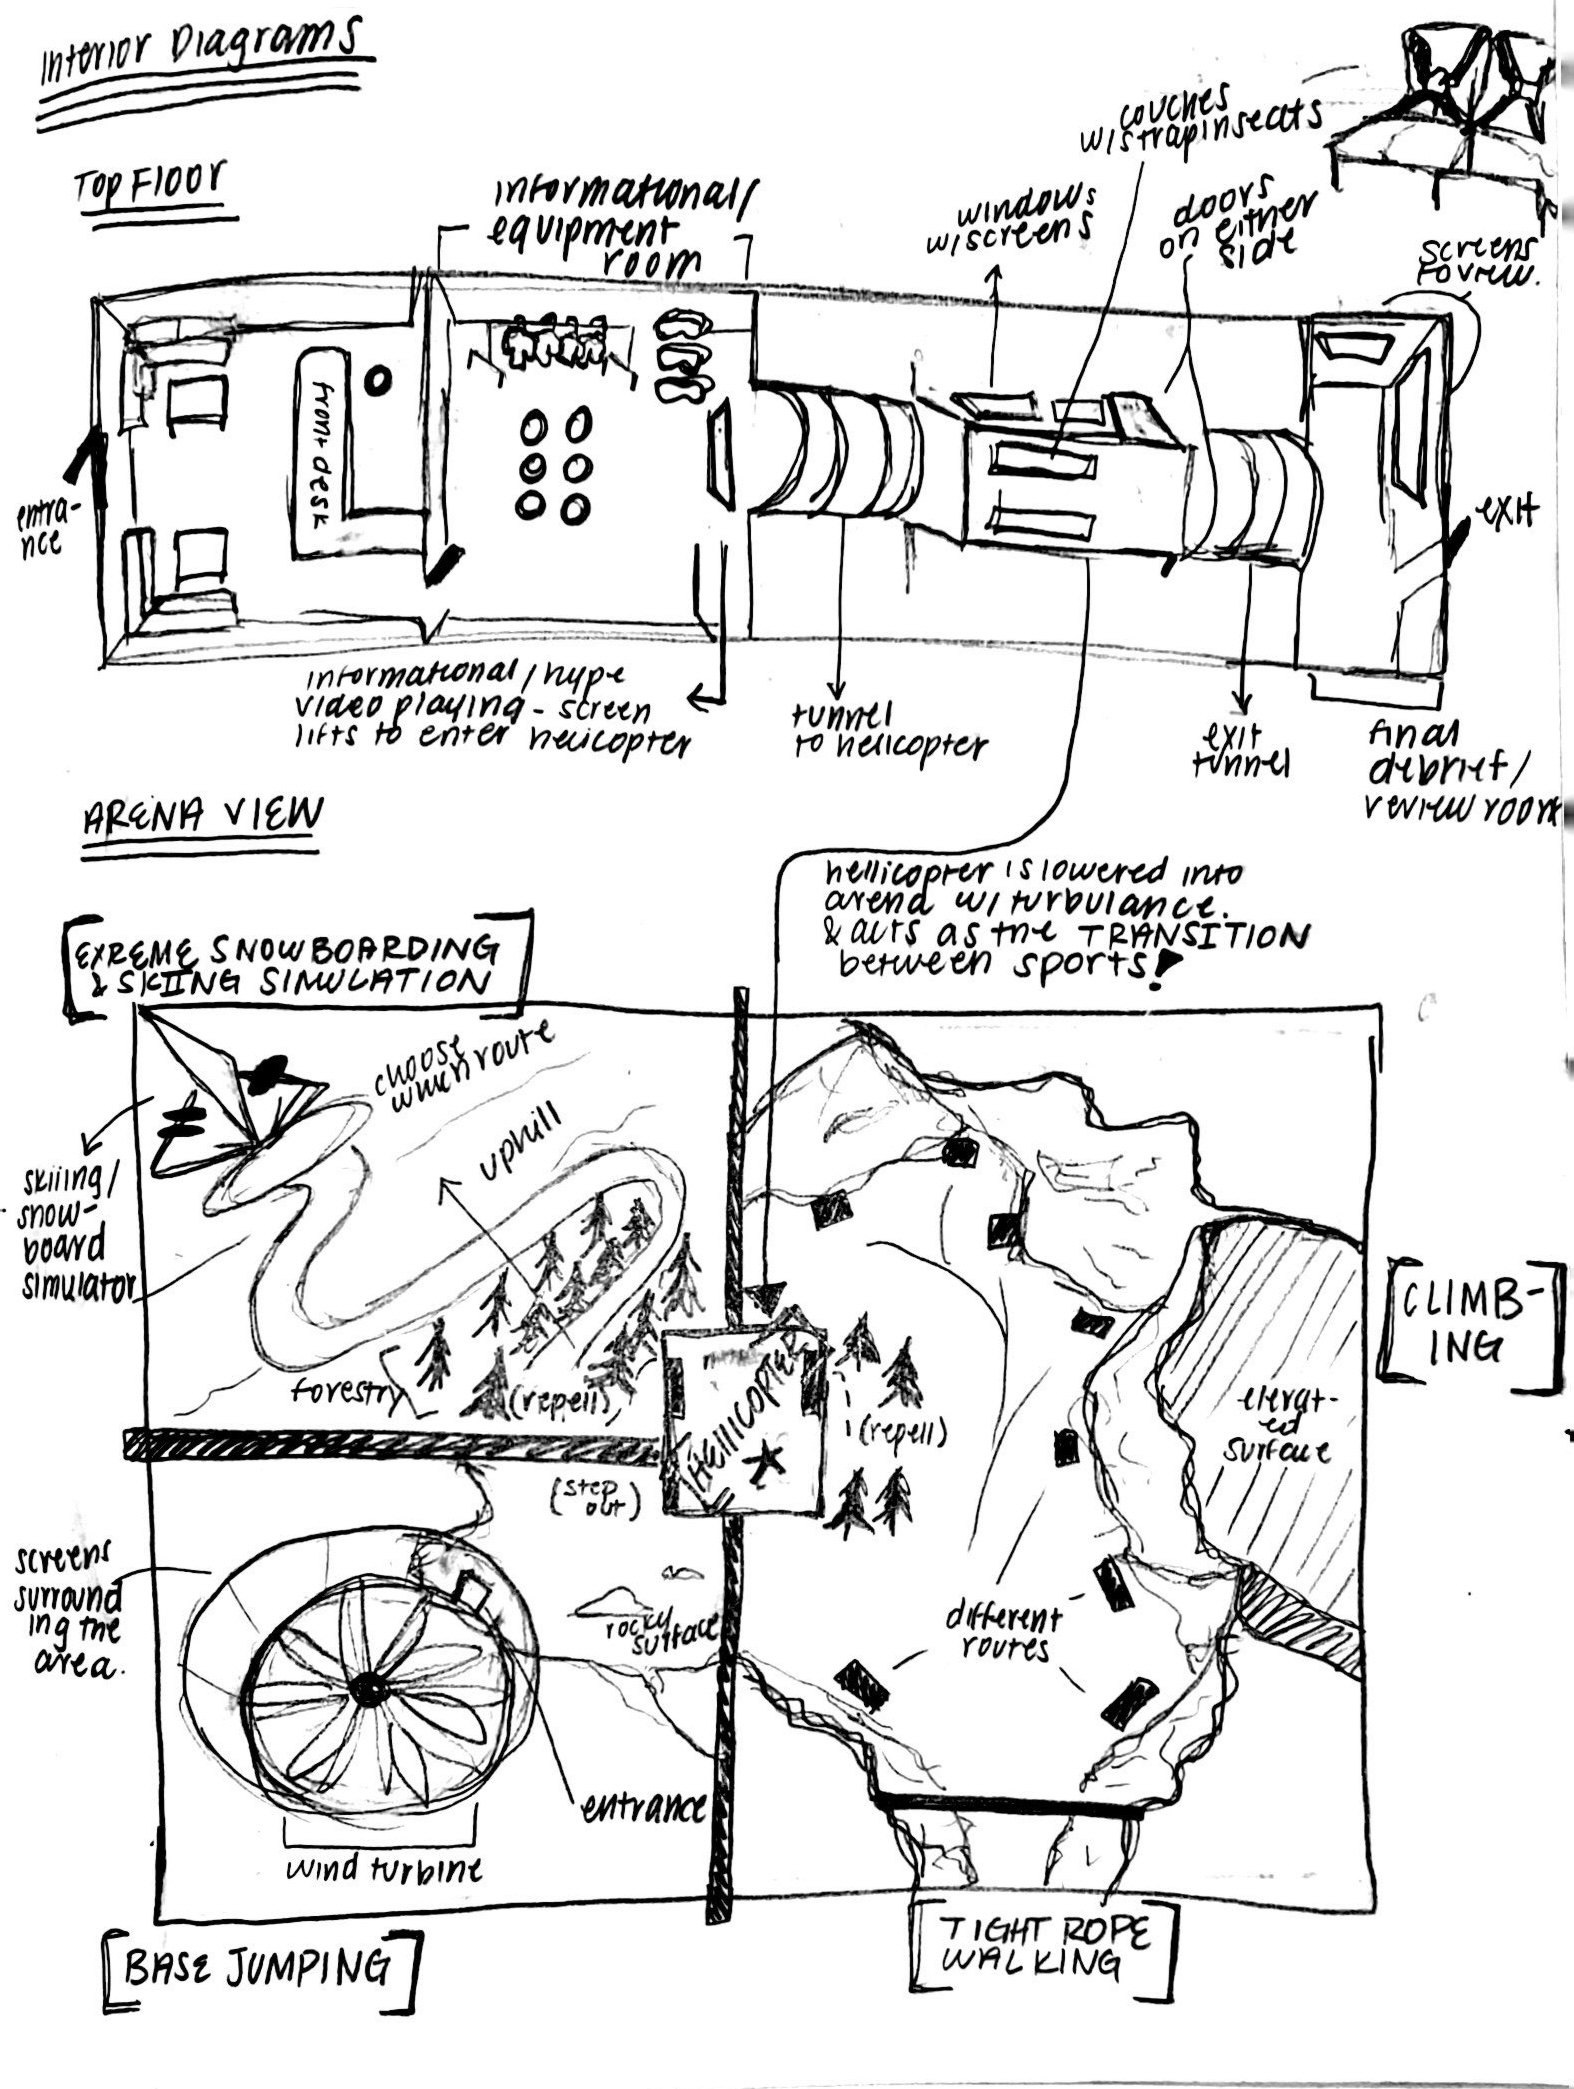 Interior Diagrams
TOP FLOOR
informational/
equipment
room
windows
w/screens
couches
w/strapinseats
doors
on either
side
screens
to view.
entra-
nce
front desk
exit
informational/hype
video playing - screen
lifts to enter helicopter
tunnel
to helicopter
exit
tunnel
final
debrief/
review room
ARENA VIEW
hellicopter is lowered into
arena w/ turbulance.
& acts as the TRANSITION
between sports!
[EXREME SNOWBOARDING
& SKIING SIMULATION]
choose
which route
uphill
skiiing/
snow-
board
simulator
forestry
(repell)
HELLICOPTER
(repell)
(step
out)
[CLIMB-
ING]
elevat-
ed
surface
screens
surround
ing the
area.
rocky
surface
different
routes
entrance
wind turbine
[BASE JUMPING]
[TIGHT ROPE
WALKING]